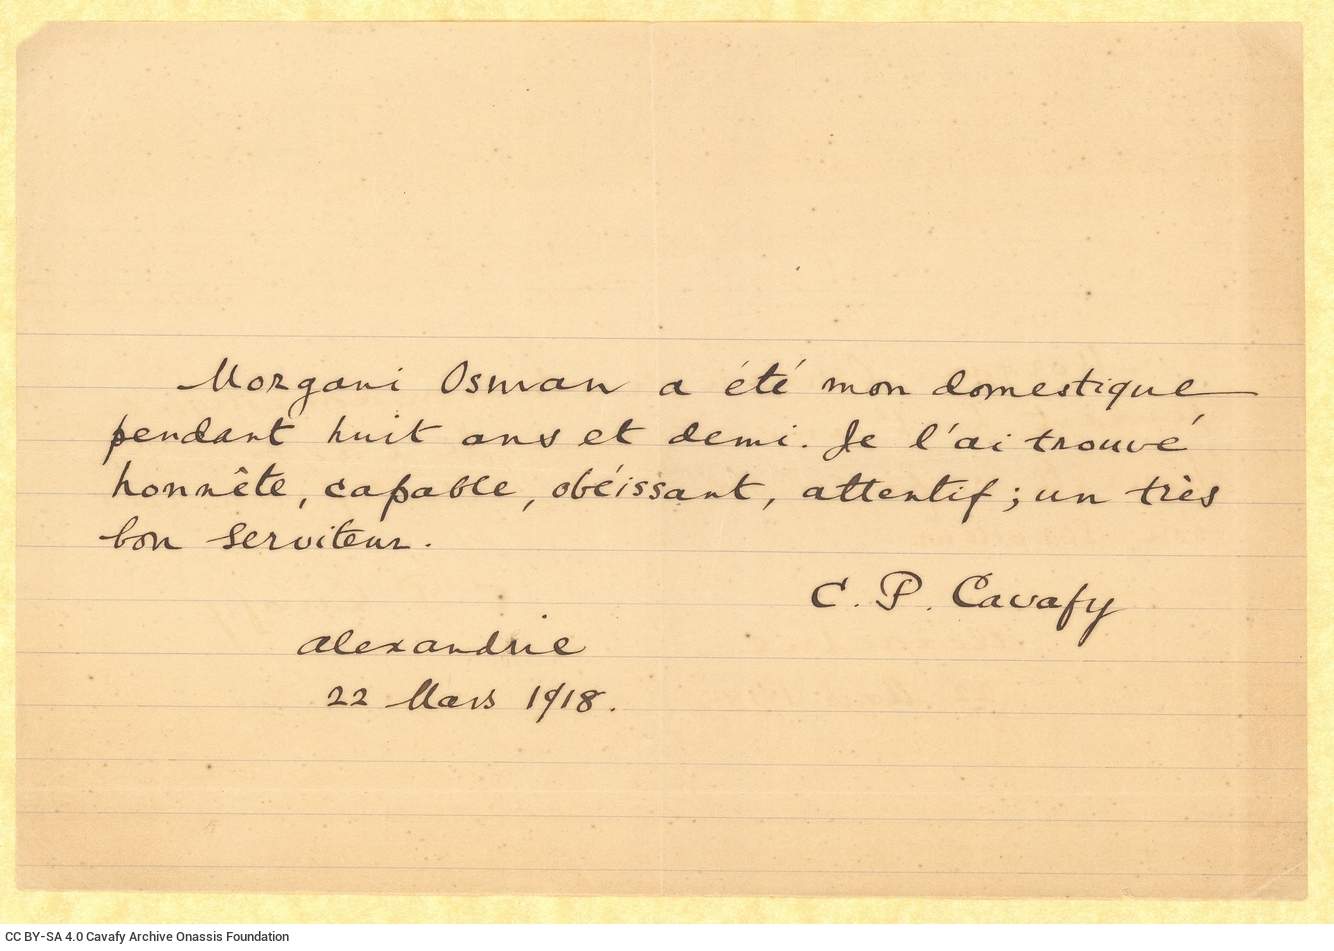 Morgani Osman a été mon domestique
pendant huit ans et demi. Je l'ai trouvé
honnête, capable, obéissant, attentif; un très
bon serviteur.
C. P. Cavafy
Alexandrie
22 Mars 1918.
CC BY-SA 4.0 Cavafy Archive Onassis Foundation